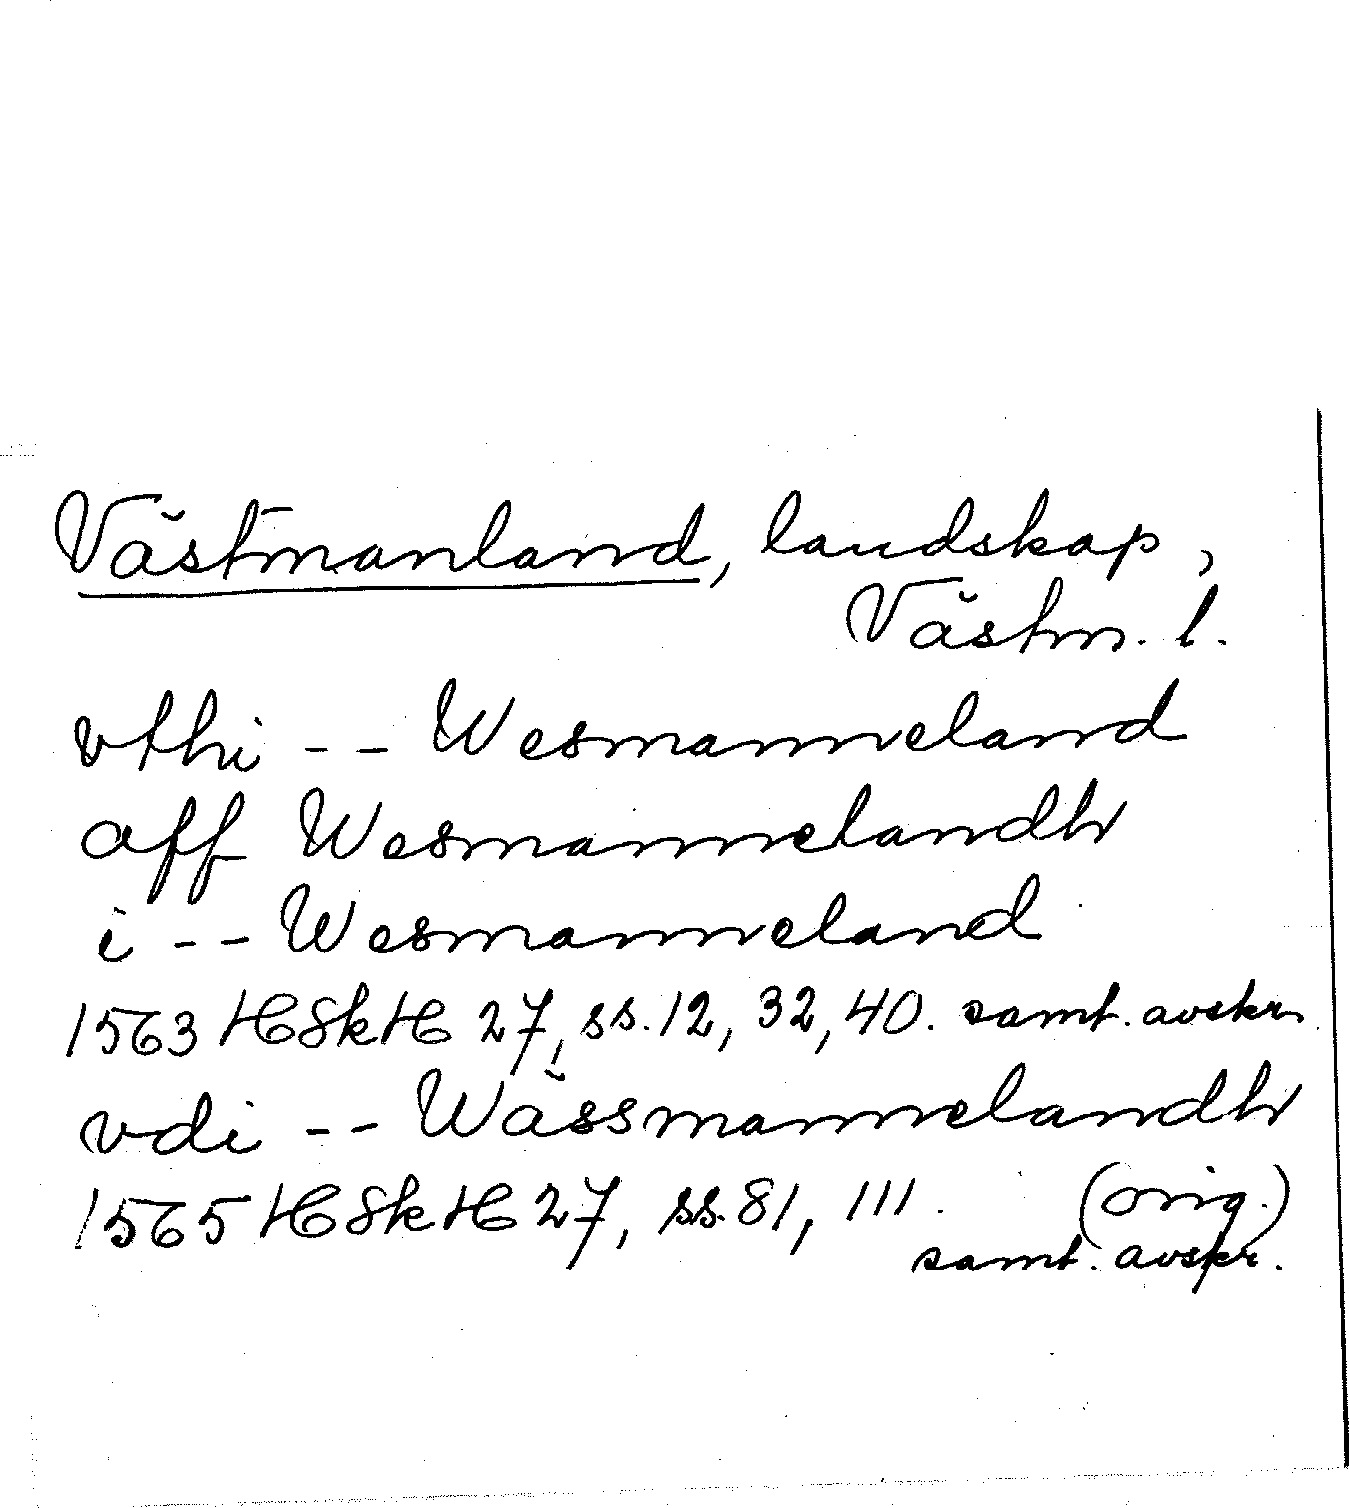 Västmanland, landskap,
Västm. l.
vthi -- Wesmanneland
aff Wesmannelandh
i -- Wesmanneland
1563 HSkH 27, ss. 12, 32, 40. samt. avskr.
vdi -- Wässmannelandh
1565 HSkH 27, ss. 81, 111. (orig.)
samt. avskr.